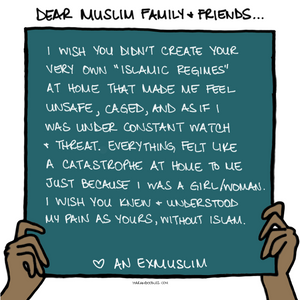 DEAR MUSLIM FAMILY + FRIENDS...
I WISH YOU DIDN'T CREATE YOUR
VERY OWN "ISLAMIC REGIMES"
AT HOME THAT MADE ME FEEL
UNSAFE, CAGED, AND AS IF I
WAS UNDER CONSTANT WATCH
+ THREAT. EVERYTHING FELT LIKE
A CATASTROPHE AT HOME TO ME
JUST BECAUSE I WAS A GIRL/WOMAN.
I WISH YOU KNEW + UNDERSTOOD
MY PAIN AS YOURS, WITHOUT ISLAM.
♡ AN EXMUSLIM